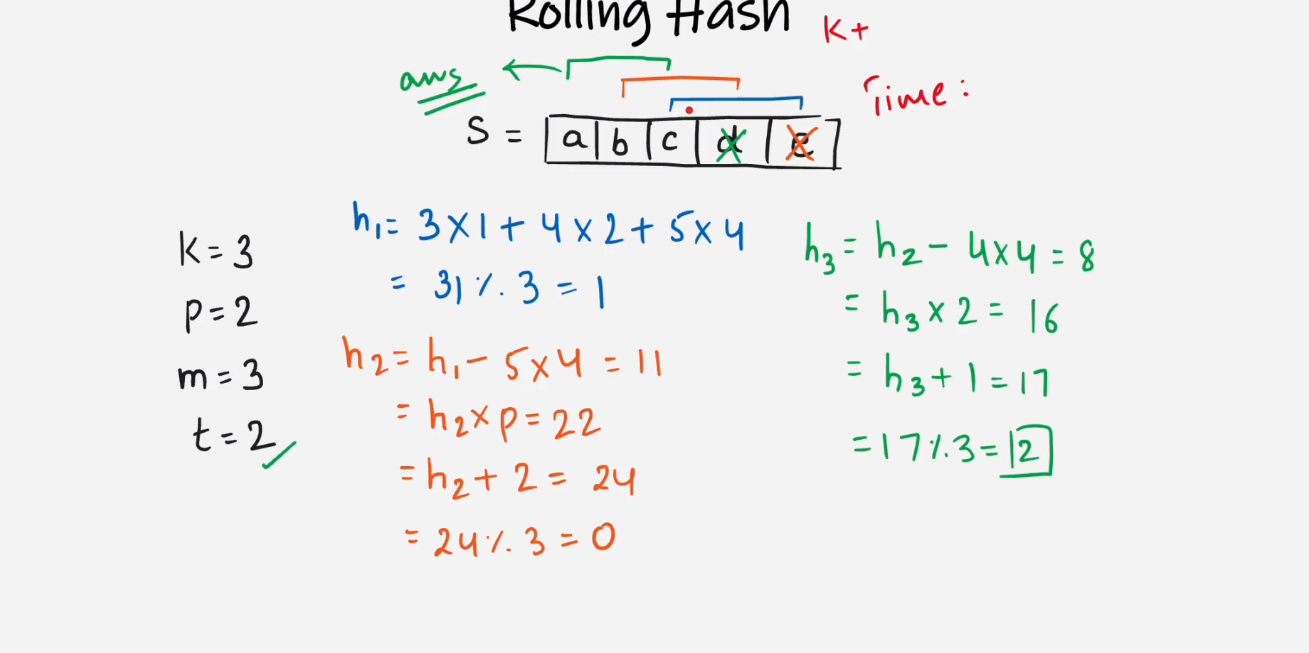 Rolling Hash
K+
Time:
ans
S = a b c d e
K = 3
P = 2
m = 3
t = 2
h1 = 3 × 1 + 4 × 2 + 5 × 4
= 31 % 3 = 1
h2 = h1 - 5 × 4 = 11
= h2 × p = 22
= h2 + 2 = 24
= 24 % 3 = 0
h3 = h2 - 4 × 4 = 8
= h3 × 2 = 16
= h3 + 1 = 17
= 17 % 3 = 2